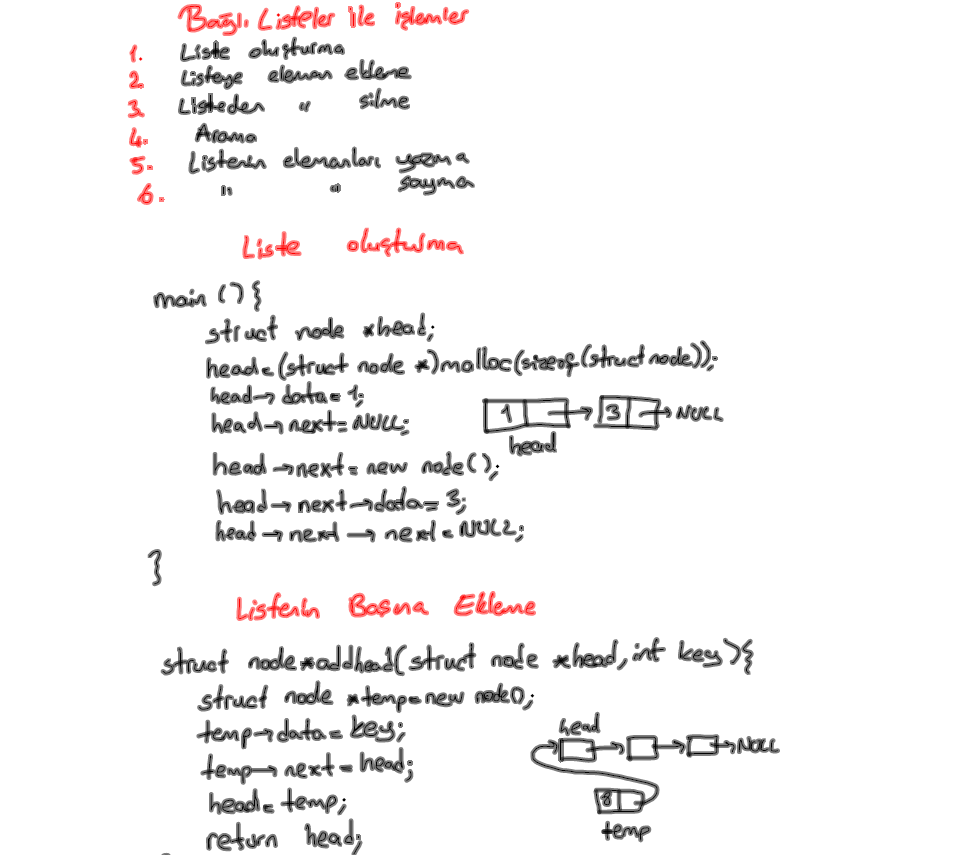 Bağlı Listeler ile işlemler
1. Liste oluşturma
2 Listeye eleman ekleme
3 Listeden " silme
4. Arama
5. Listenin elemanları yazma
6. " " sayma
Liste oluşturma
main () {
struct node *head;
head=(struct node *)malloc(sizeof(struct node));
head→data=1;
head→next=NULL;
1 3 → NULL
head
head→next=new node();
head→next→data=3;
head→next→next=NULL;
}
Listenin Başına Ekleme
struct node*addhead(struct node *head,int key){
struct node *temp=new node();
temp→data=key;
head
temp→next=head;
→NULL
head=temp;
8
temp
return head;